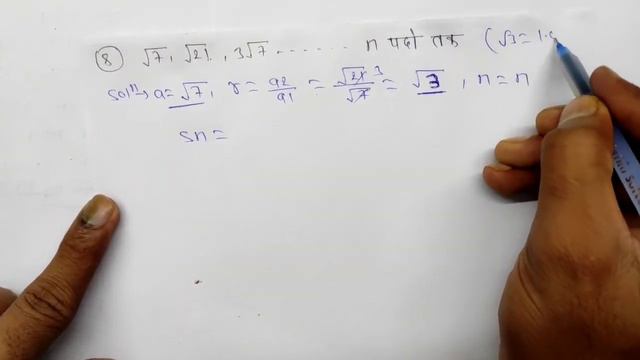 ⑧ √7, √21, 3√7 ....... n पदो तक (√3 = 1.
Solⁿ→ a = √7, r = a2/a1 = √21/√7 = √3, n = n
Sn =